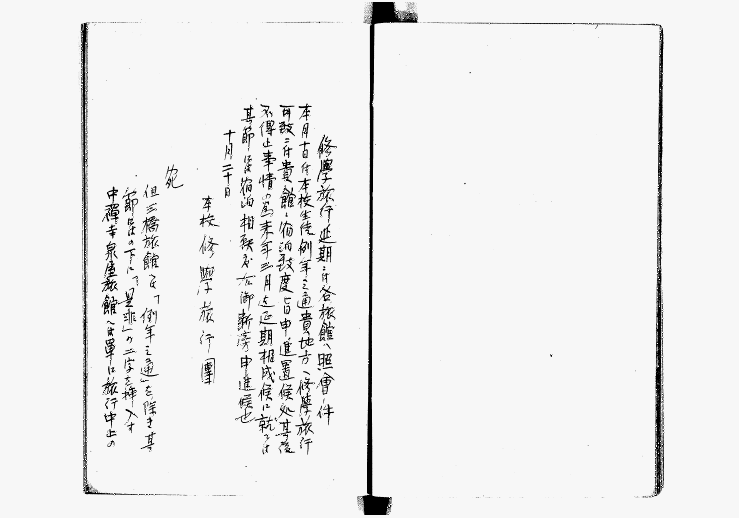 修學旅行延期ニ付各旅館ヘ照會ノ件
本月十日付本校生徒例年之通貴地方ヘ修學旅行
可致ニ付貴館ヘ宿泊致度旨申進置候処其後
不得止事情の為来年三月迄延期相成候に就ては
其節は宿泊相願度右御断旁申進候也
十月二十日
本校修學旅行團
宛
但三橋旅館を「例年之通」を除き其
節はの下に「是非」の二字を挿入す
中禪寺泉屋旅館ヘは單に旅行中止の